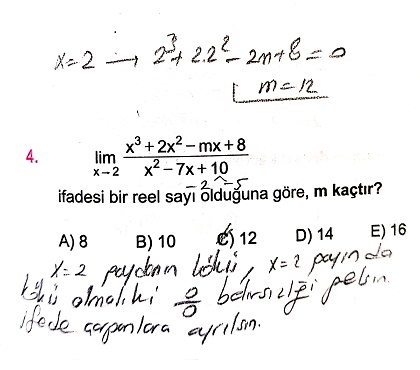 x=2 → 2³+2.2²-2m+8=0
m=12
4. lim x→2 x³+2x²-mx+8 / x²-7x+10
-2 -5
ifadesi bir reel sayı olduğuna göre, m kaçtır?
A) 8 B) 10 C) 12 D) 14 E) 16
x=2 paydanın kökü, x=2 payında
kökü olmalı ki 0/0 belirsizliği gelsin.
ifade çarpanlara ayrılsın.